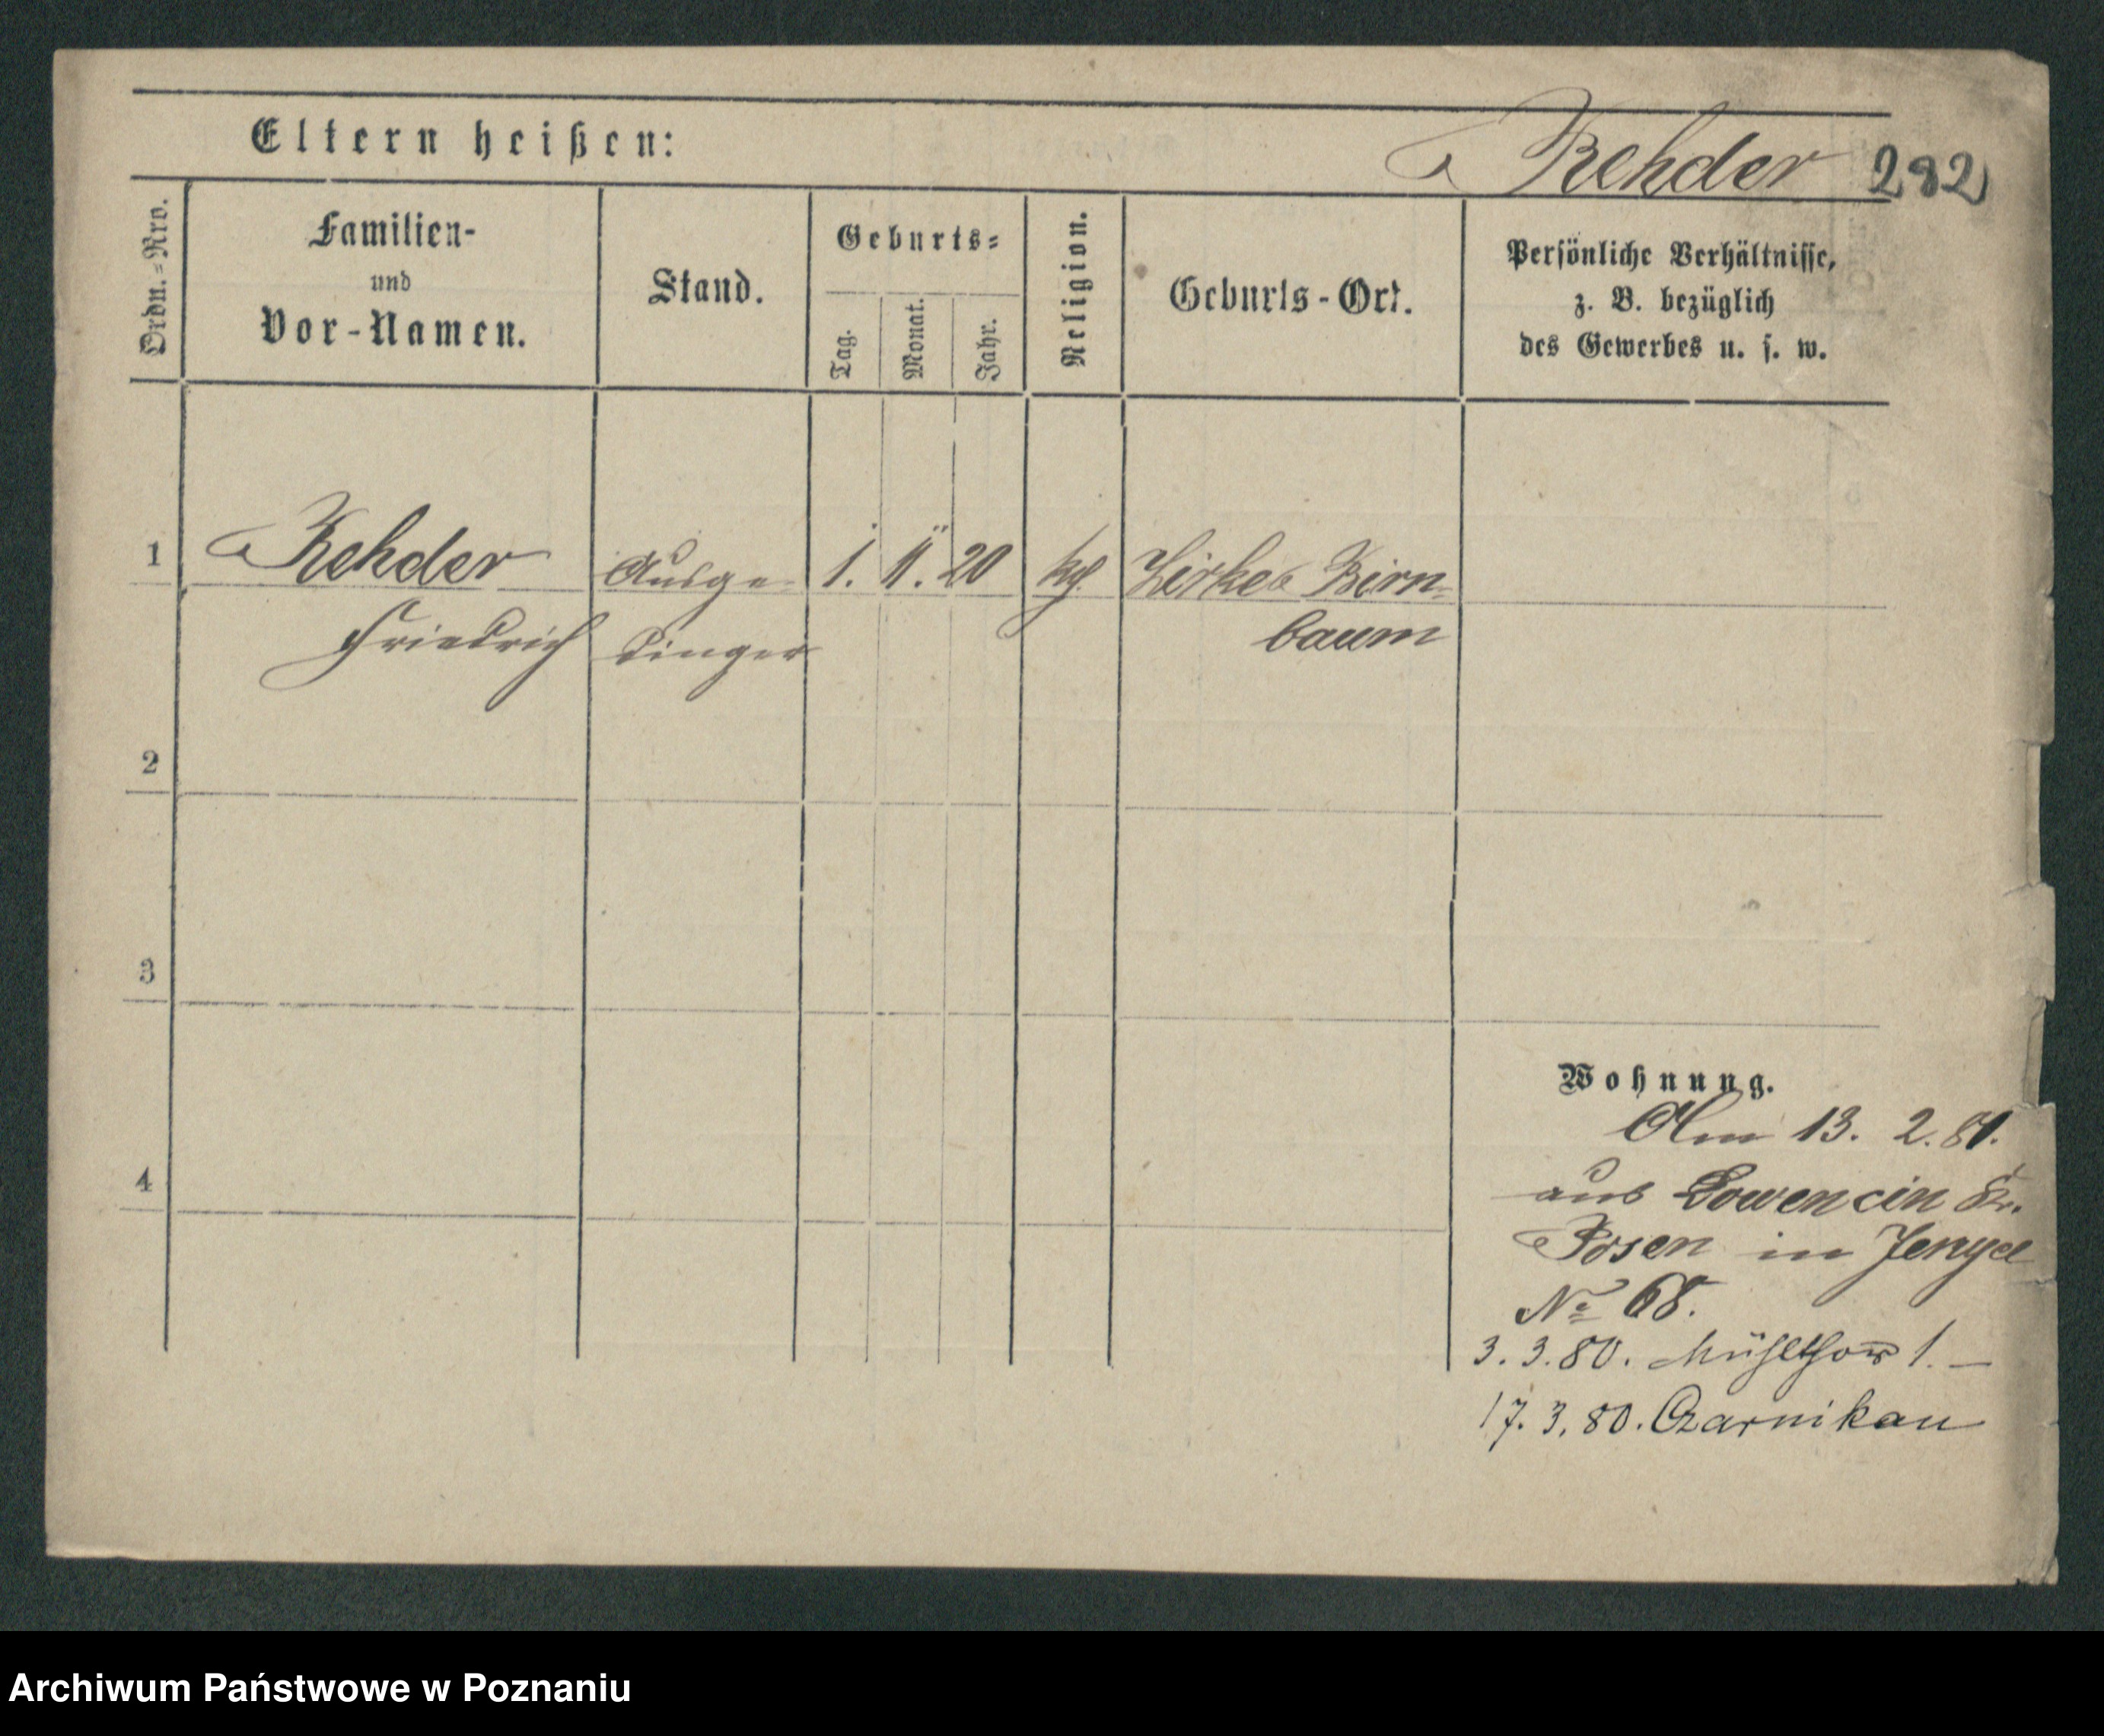 Eltern heißen:
Rehder 292
Ordn.-Nro.
Familien-
und
Vor-Namen.
Stand.
Geburts-
Tag.
Monat.
Jahr.
Religion.
Geburts-Ort.
Persönliche Verhältnisse,
z. B. bezüglich
des Gewerbes u. s. w.
1 Rehder Ausge- 1. 11. 20 Zirke Birn-
Friedrich dinger baum
2
3
4
Wohnung.
Am 13. 2. 80.
aus Lowencin Kr.
Posen in
No 68.
3. 3. 80. 1. —
17. 3. 80. Czarnikau
Archiwum Państwowe w Poznaniu